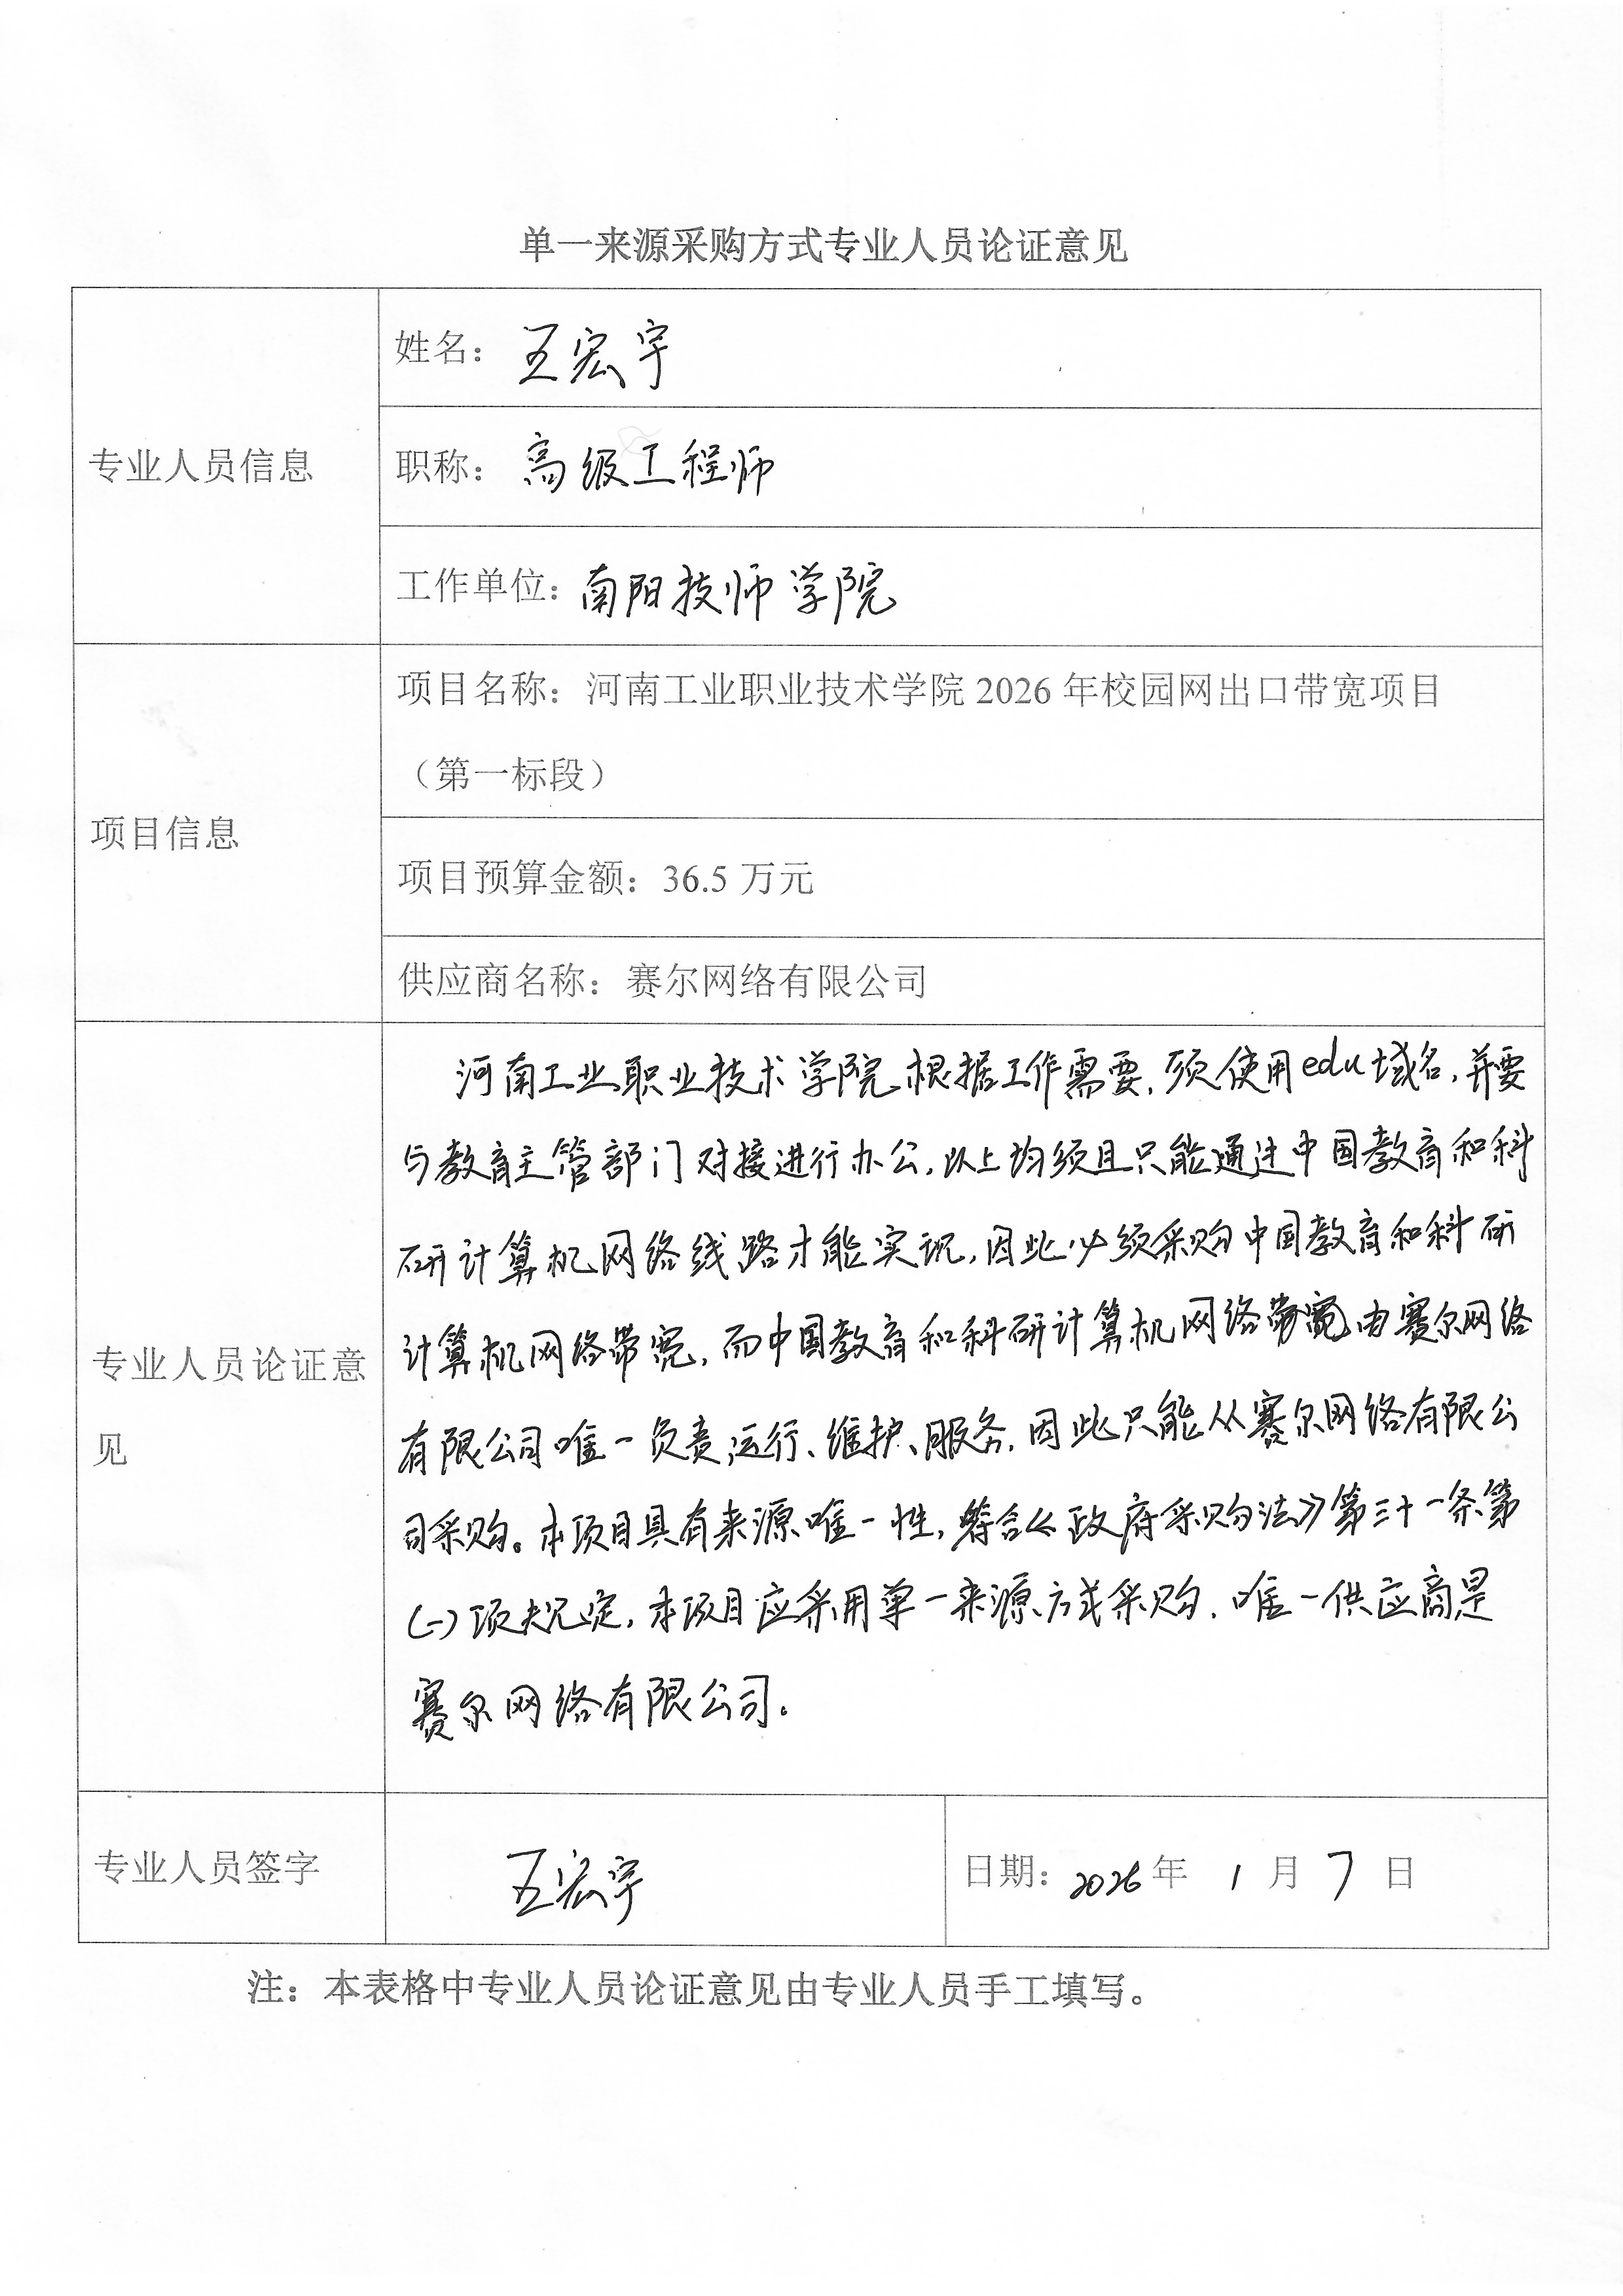 单一来源采购方式专业人员论证意见
专业人员信息
姓名：王宏宇
职称：高级工程师
工作单位：南阳技师学院
项目信息
项目名称：河南工业职业技术学院 2026 年校园网出口带宽项目
（第一标段）
项目预算金额：36.5 万元
供应商名称：赛尔网络有限公司
专业人员论证意
见
河南工业职业技术学院根据工作需要，须使用edu域名，并要
与教育主管部门对接进行办公，以上均须且只能通过中国教育和科
研计算机网络线路才能实现，因此必须采购中国教育和科研
计算机网络带宽，而中国教育和科研计算机网络带宽由赛尔网络
有限公司唯一负责运行、维护、服务，因此只能从赛尔网络有限公
司采购。本项目具有来源唯一性，符合《政府采购法》第三十一条第
(一)项规定，本项目应采用单一来源方式采购，唯一供应商是
赛尔网络有限公司。
专业人员签字
王宏宇
日期：2026年 1 月 7 日
注：本表格中专业人员论证意见由专业人员手工填写。